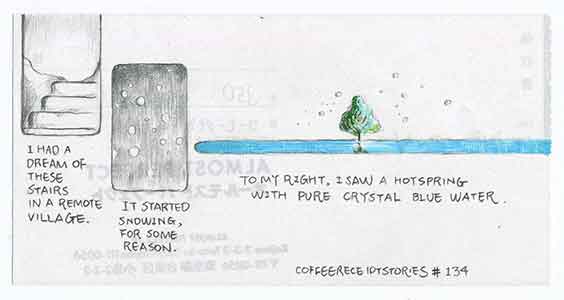 I HAD A
DREAM OF
THESE
STAIRS
IN A REMOTE
VILLAGE.
IT STARTED
SNOWING,
FOR SOME
REASON.
TO MY RIGHT, I SAW A HOTSPRING
WITH PURE CRYSTAL BLUE WATER.
COFFEERECEIPTSTORIES # 134